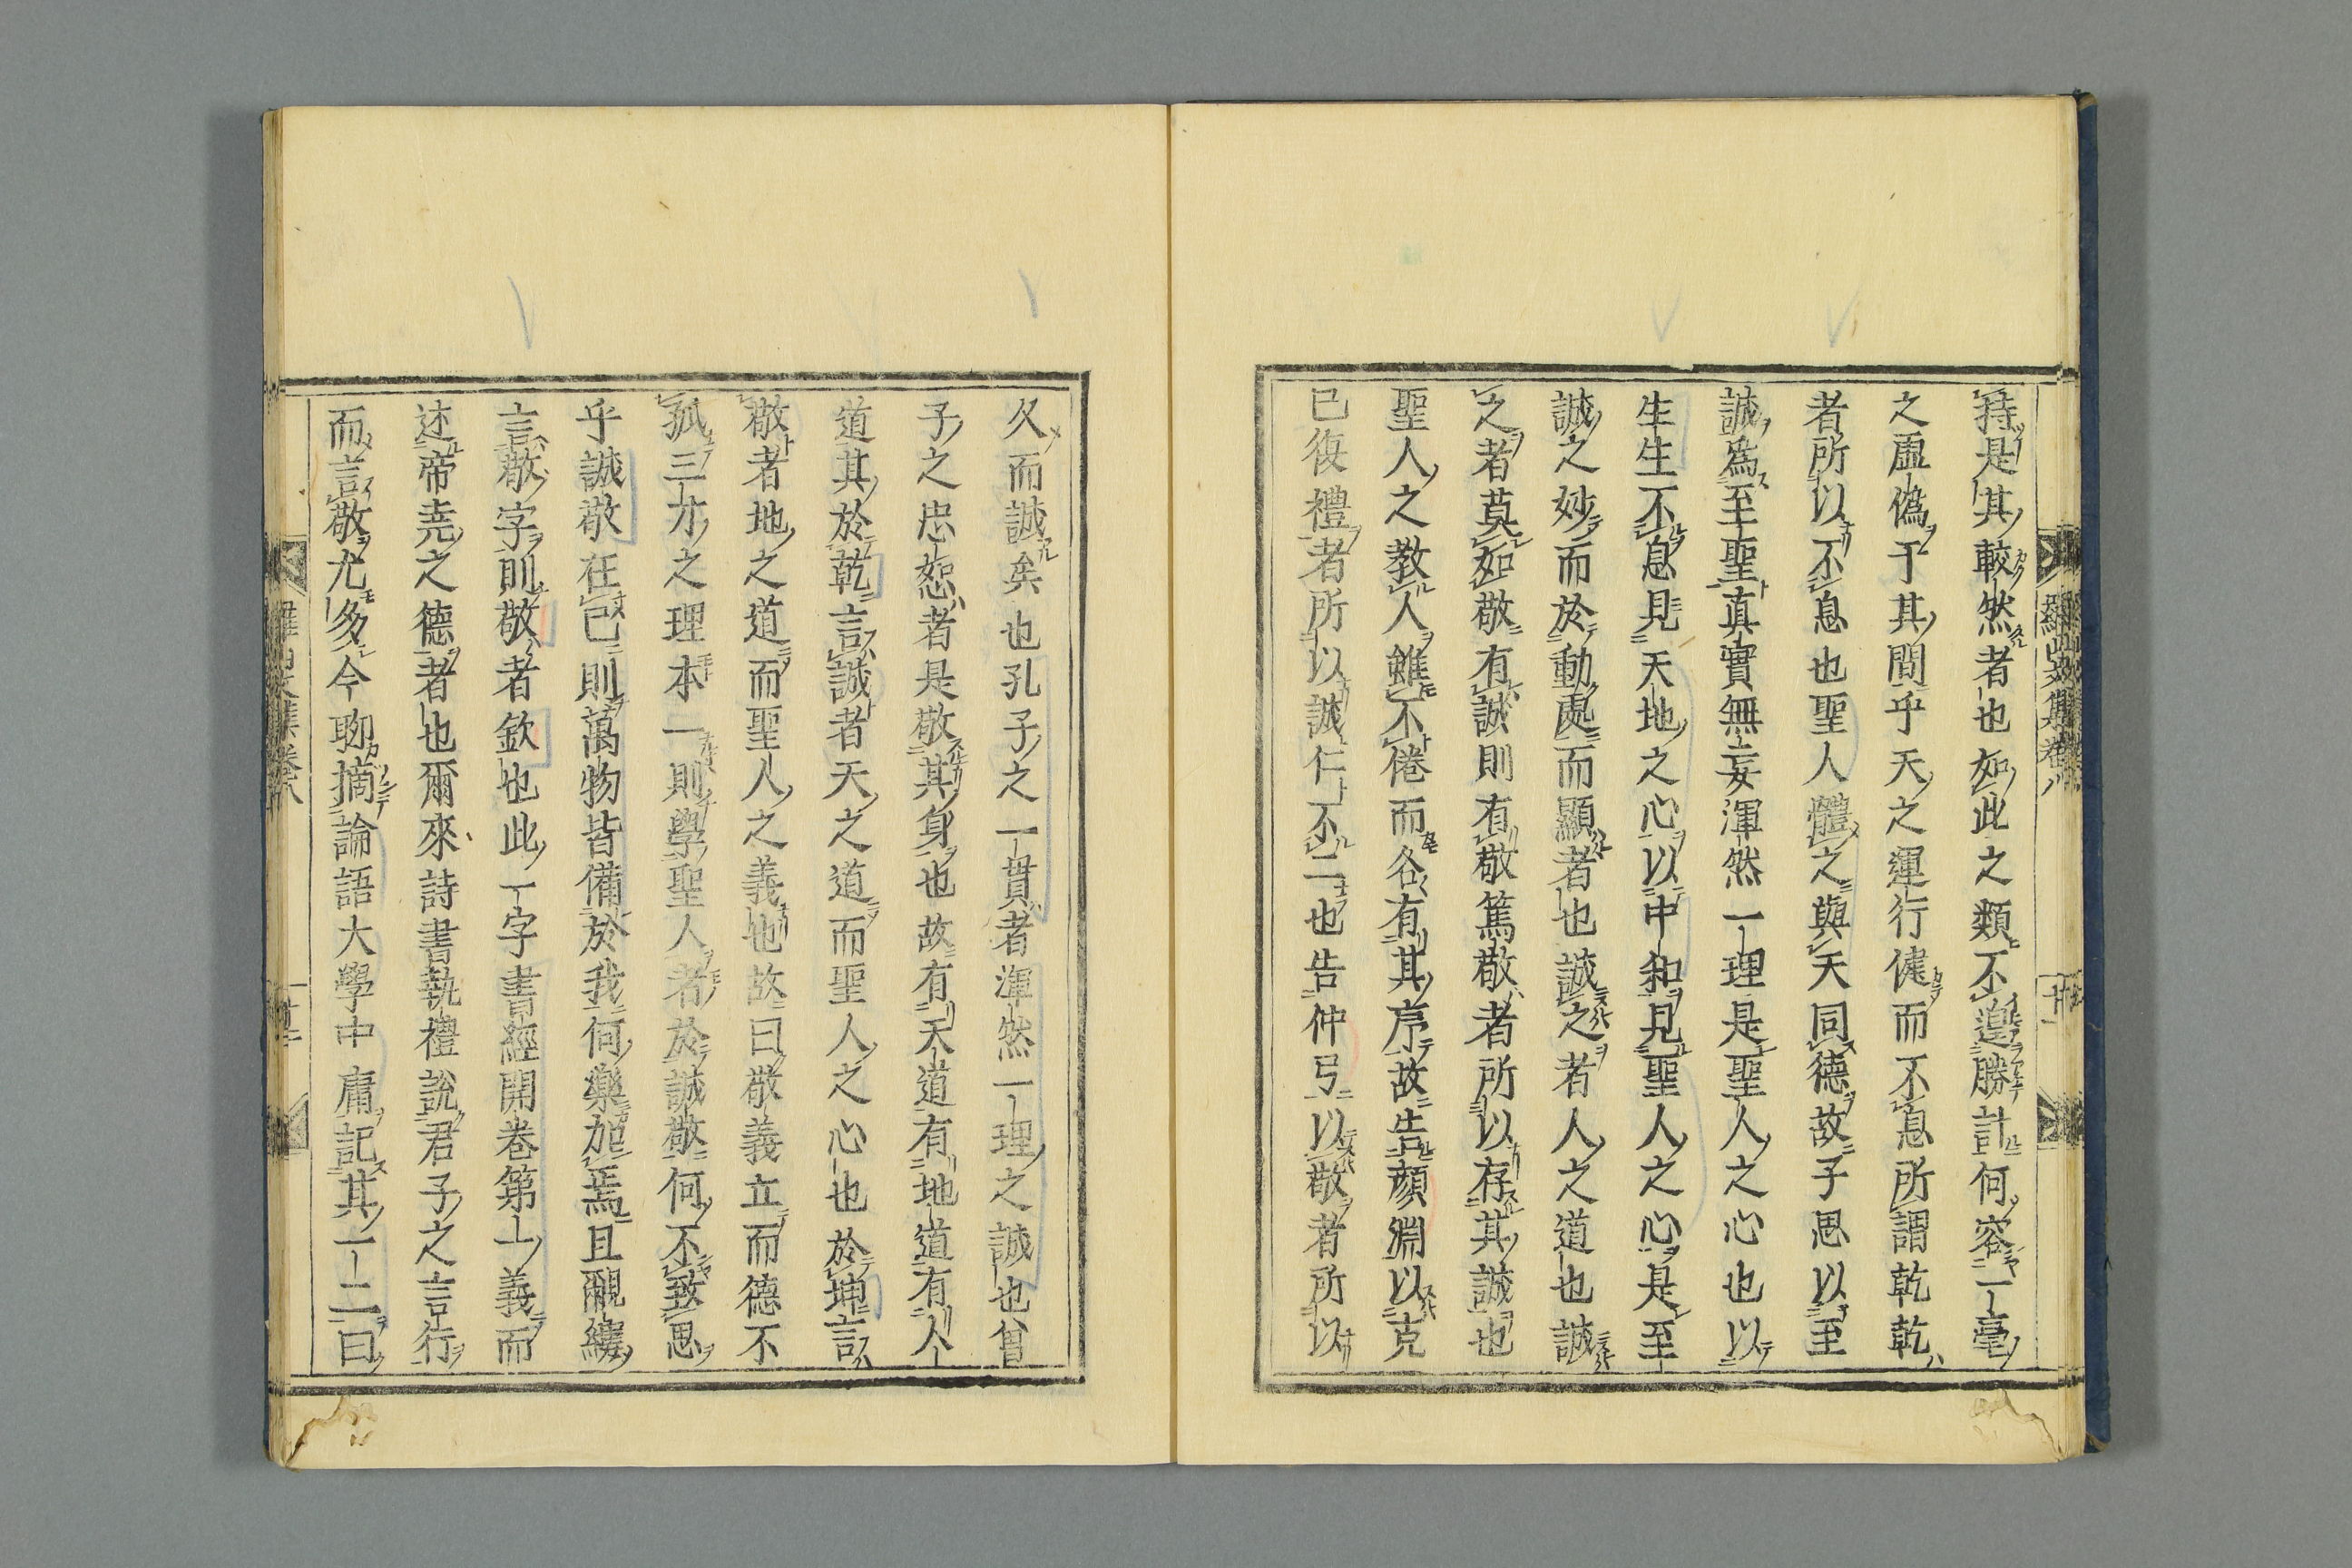 羅山文集卷八
十一
持是其較然者也如此之類不遑勝計何容一毫
之虛僞于其間乎天之運行健而不息所謂乾乾
者所以不息也聖人體之與天同德故子思以至
誠爲至聖真實無妄渾然一理是聖人之心也以
生生不息見天地之心以中和見聖人之心是至
誠之妙而於動處而顯者也誠之者人之道也誠
之者莫如敬有誠則有敬篤敬者所以存其誠也
聖人之教人雖不倦而各有其序故告顏淵以克
已復禮者所以誠仁不二也告仲弓以敬者所以
久而誠矣也孔子之一貫者渾然一理之誠也曾
子之忠恕者是敬其身也故有天道有地道有人
道其於乾言誠者天之道而聖人之心也於坤言
敬者地之道而聖人之義也故曰敬義立而德不
孤三才之理本一則學聖人者於誠敬何不致思
乎誠敬在已則萬物皆備於我何樂加焉且覼縷
言敬字則敬者欽也此一字書經開卷第一義而
述帝堯之德者也爾來詩書執禮說君子之言行
而言敬尤多今聊摘論語大學中庸記其一二曰
羅山文集卷八